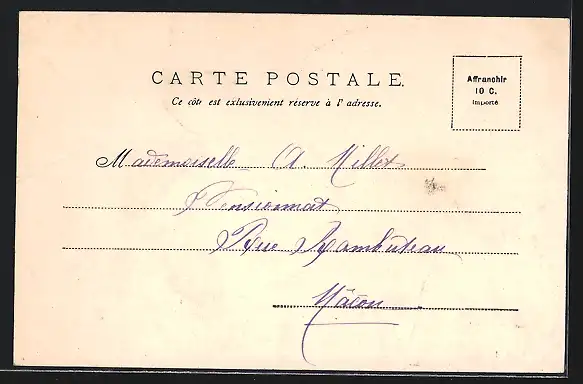 CARTE POSTALE.
Ce côté est exlusivement réserve à l' adresse.
Affranchir
10 C.
Importé
Mademoiselle A. Millot
Pensionnat
Rue Rambuteau
Mâcon